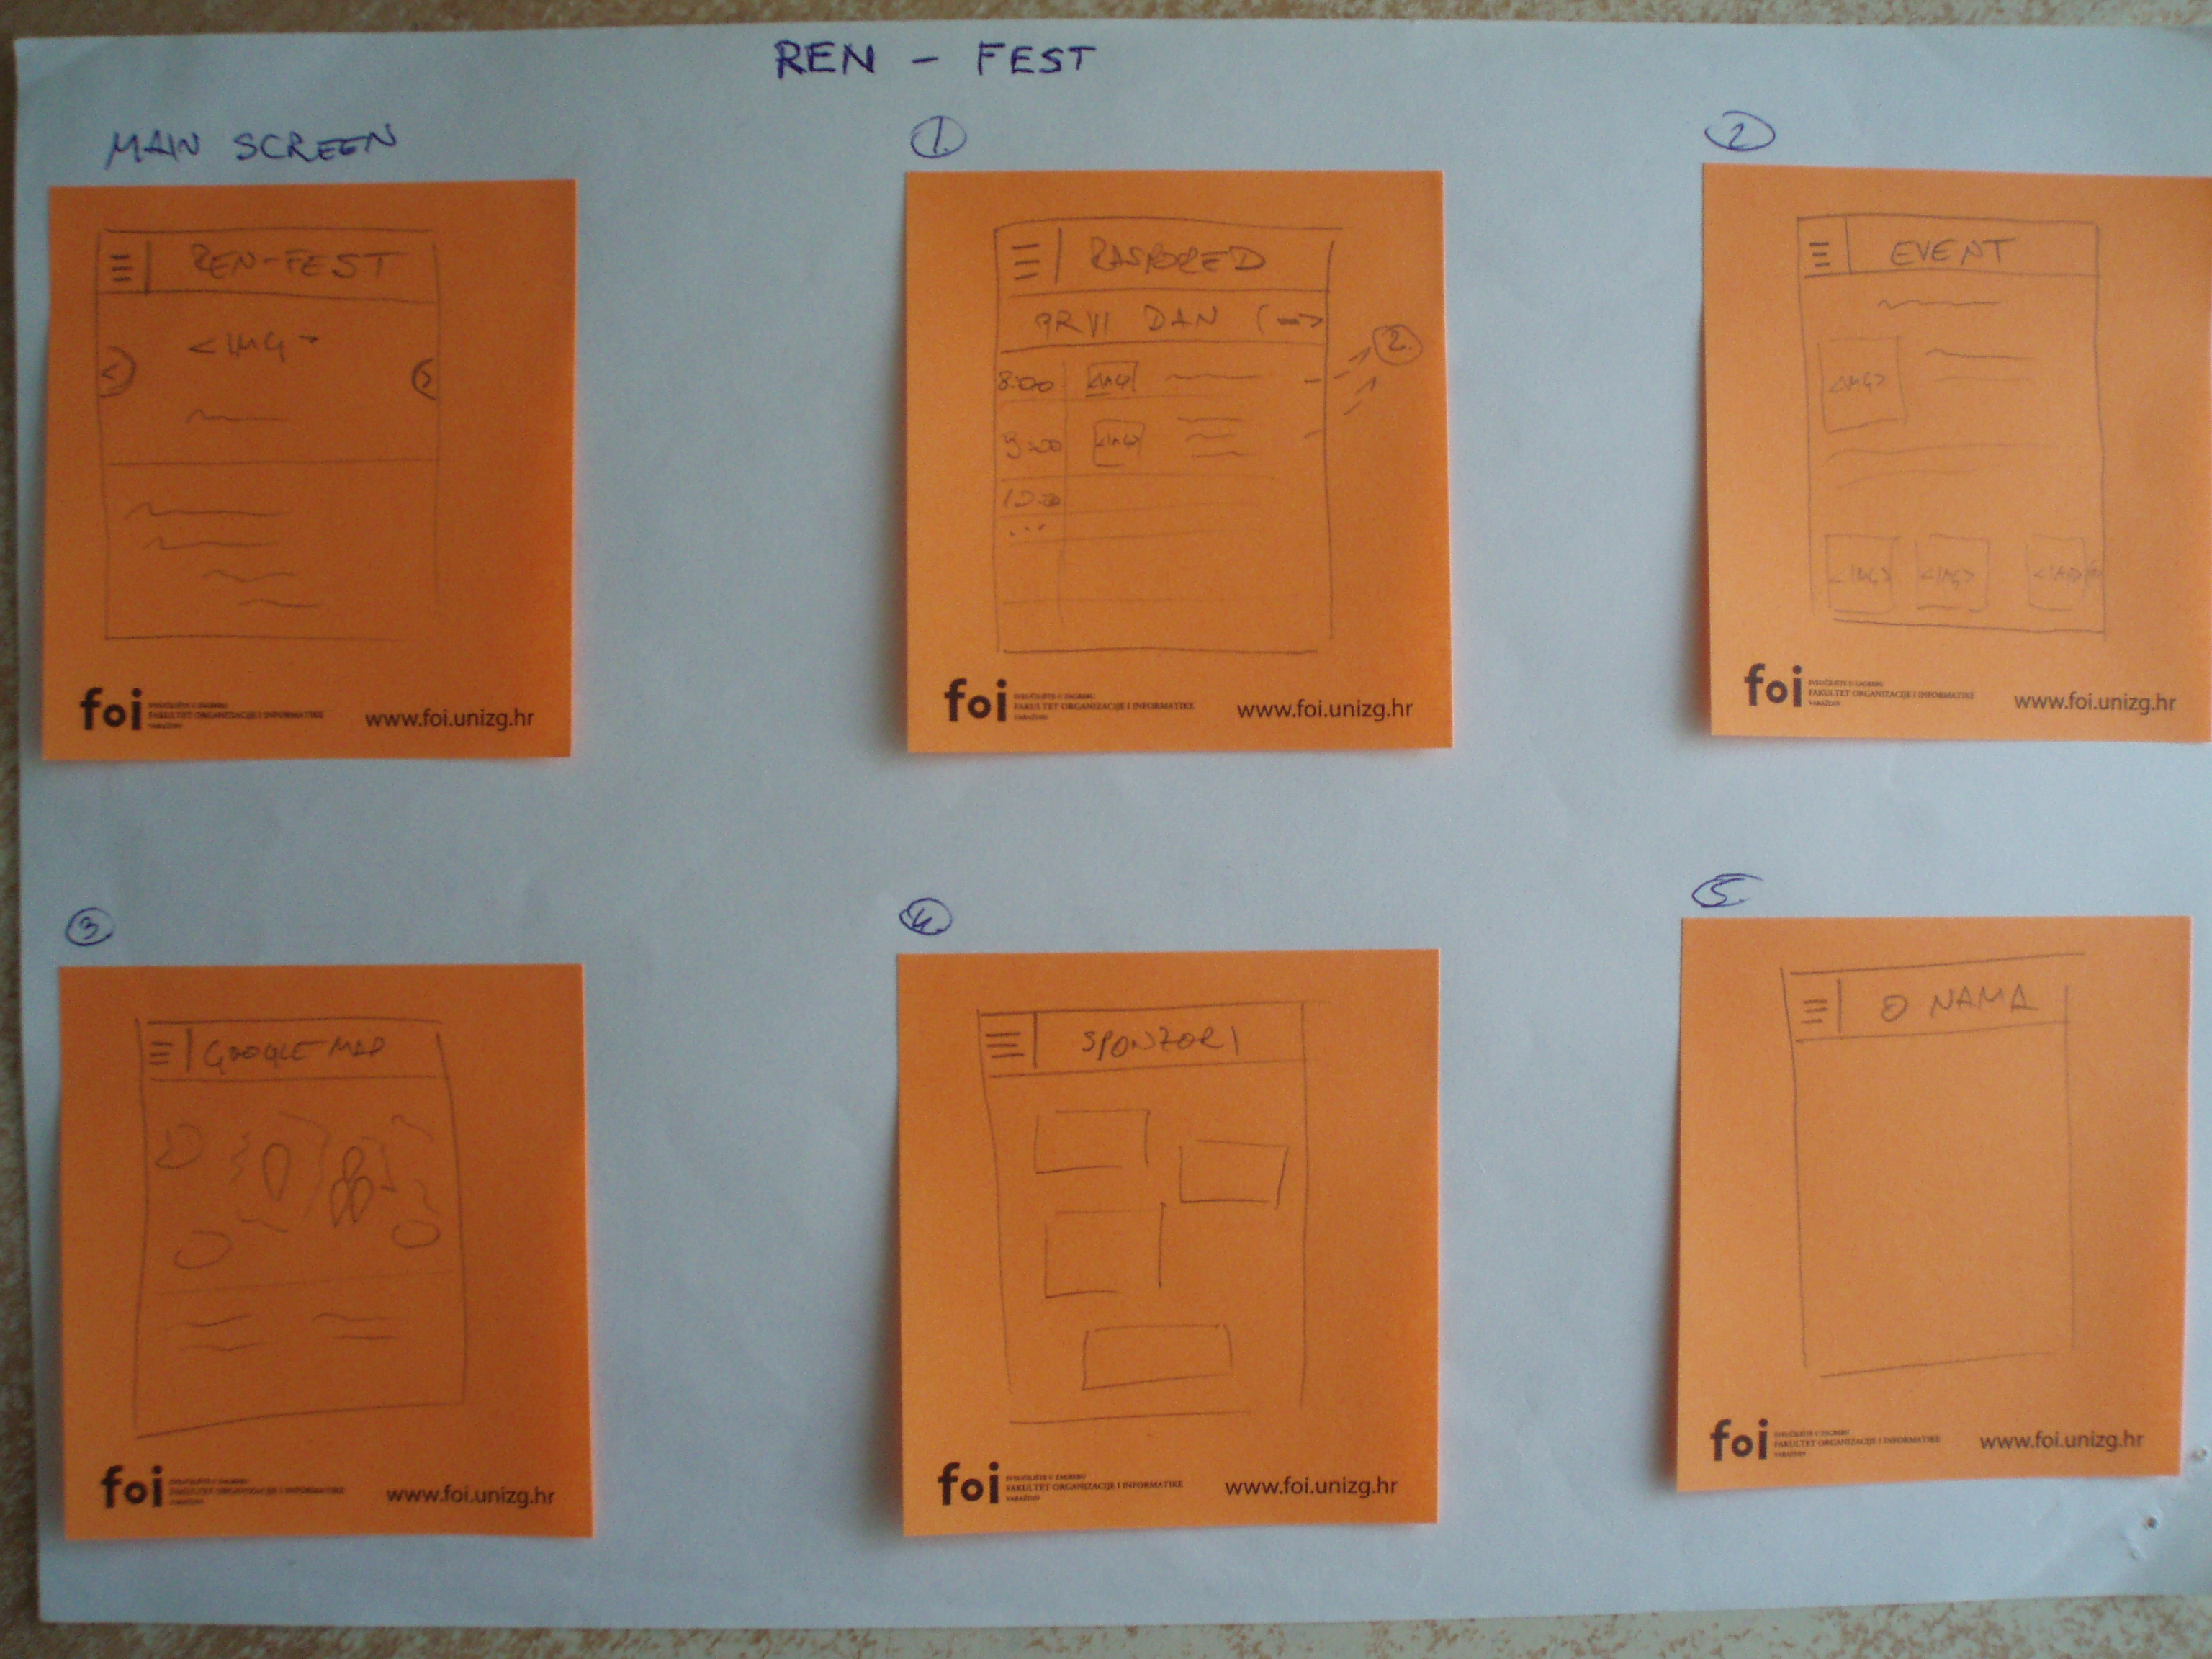 REN - FEST
MAIN SCREEN
REN-FEST
<IMG>
foi
SVEUČILIŠTE U ZAGREBU
FAKULTET ORGANIZACIJE I INFORMATIKE
VARAŽDIN
www.foi.unizg.hr
1.
RASPORED
PRVI DAN
8:00 <IMG>
2.
9:00 <IMG>
10:00
...
foi
SVEUČILIŠTE U ZAGREBU
FAKULTET ORGANIZACIJE I INFORMATIKE
VARAŽDIN
www.foi.unizg.hr
2
EVENT
<IMG>
<IMG> <IMG> <IMG>
foi
SVEUČILIŠTE U ZAGREBU
FAKULTET ORGANIZACIJE I INFORMATIKE
VARAŽDIN
www.foi.unizg.hr
3
GOOGLE MAP
foi
SVEUČILIŠTE U ZAGREBU
FAKULTET ORGANIZACIJE I INFORMATIKE
VARAŽDIN
www.foi.unizg.hr
4.
SPONZORI
foi
SVEUČILIŠTE U ZAGREBU
FAKULTET ORGANIZACIJE I INFORMATIKE
VARAŽDIN
www.foi.unizg.hr
5.
O NAMA
foi
SVEUČILIŠTE U ZAGREBU
FAKULTET ORGANIZACIJE I INFORMATIKE
VARAŽDIN
www.foi.unizg.hr